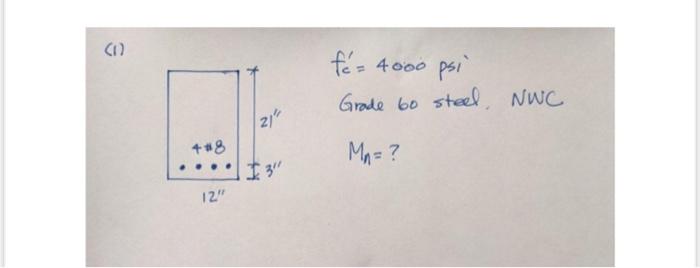 (1)
f'c = 4000 psi
Grade 60 steel. NWC
21"
4#8
Mn = ?
3"
12"